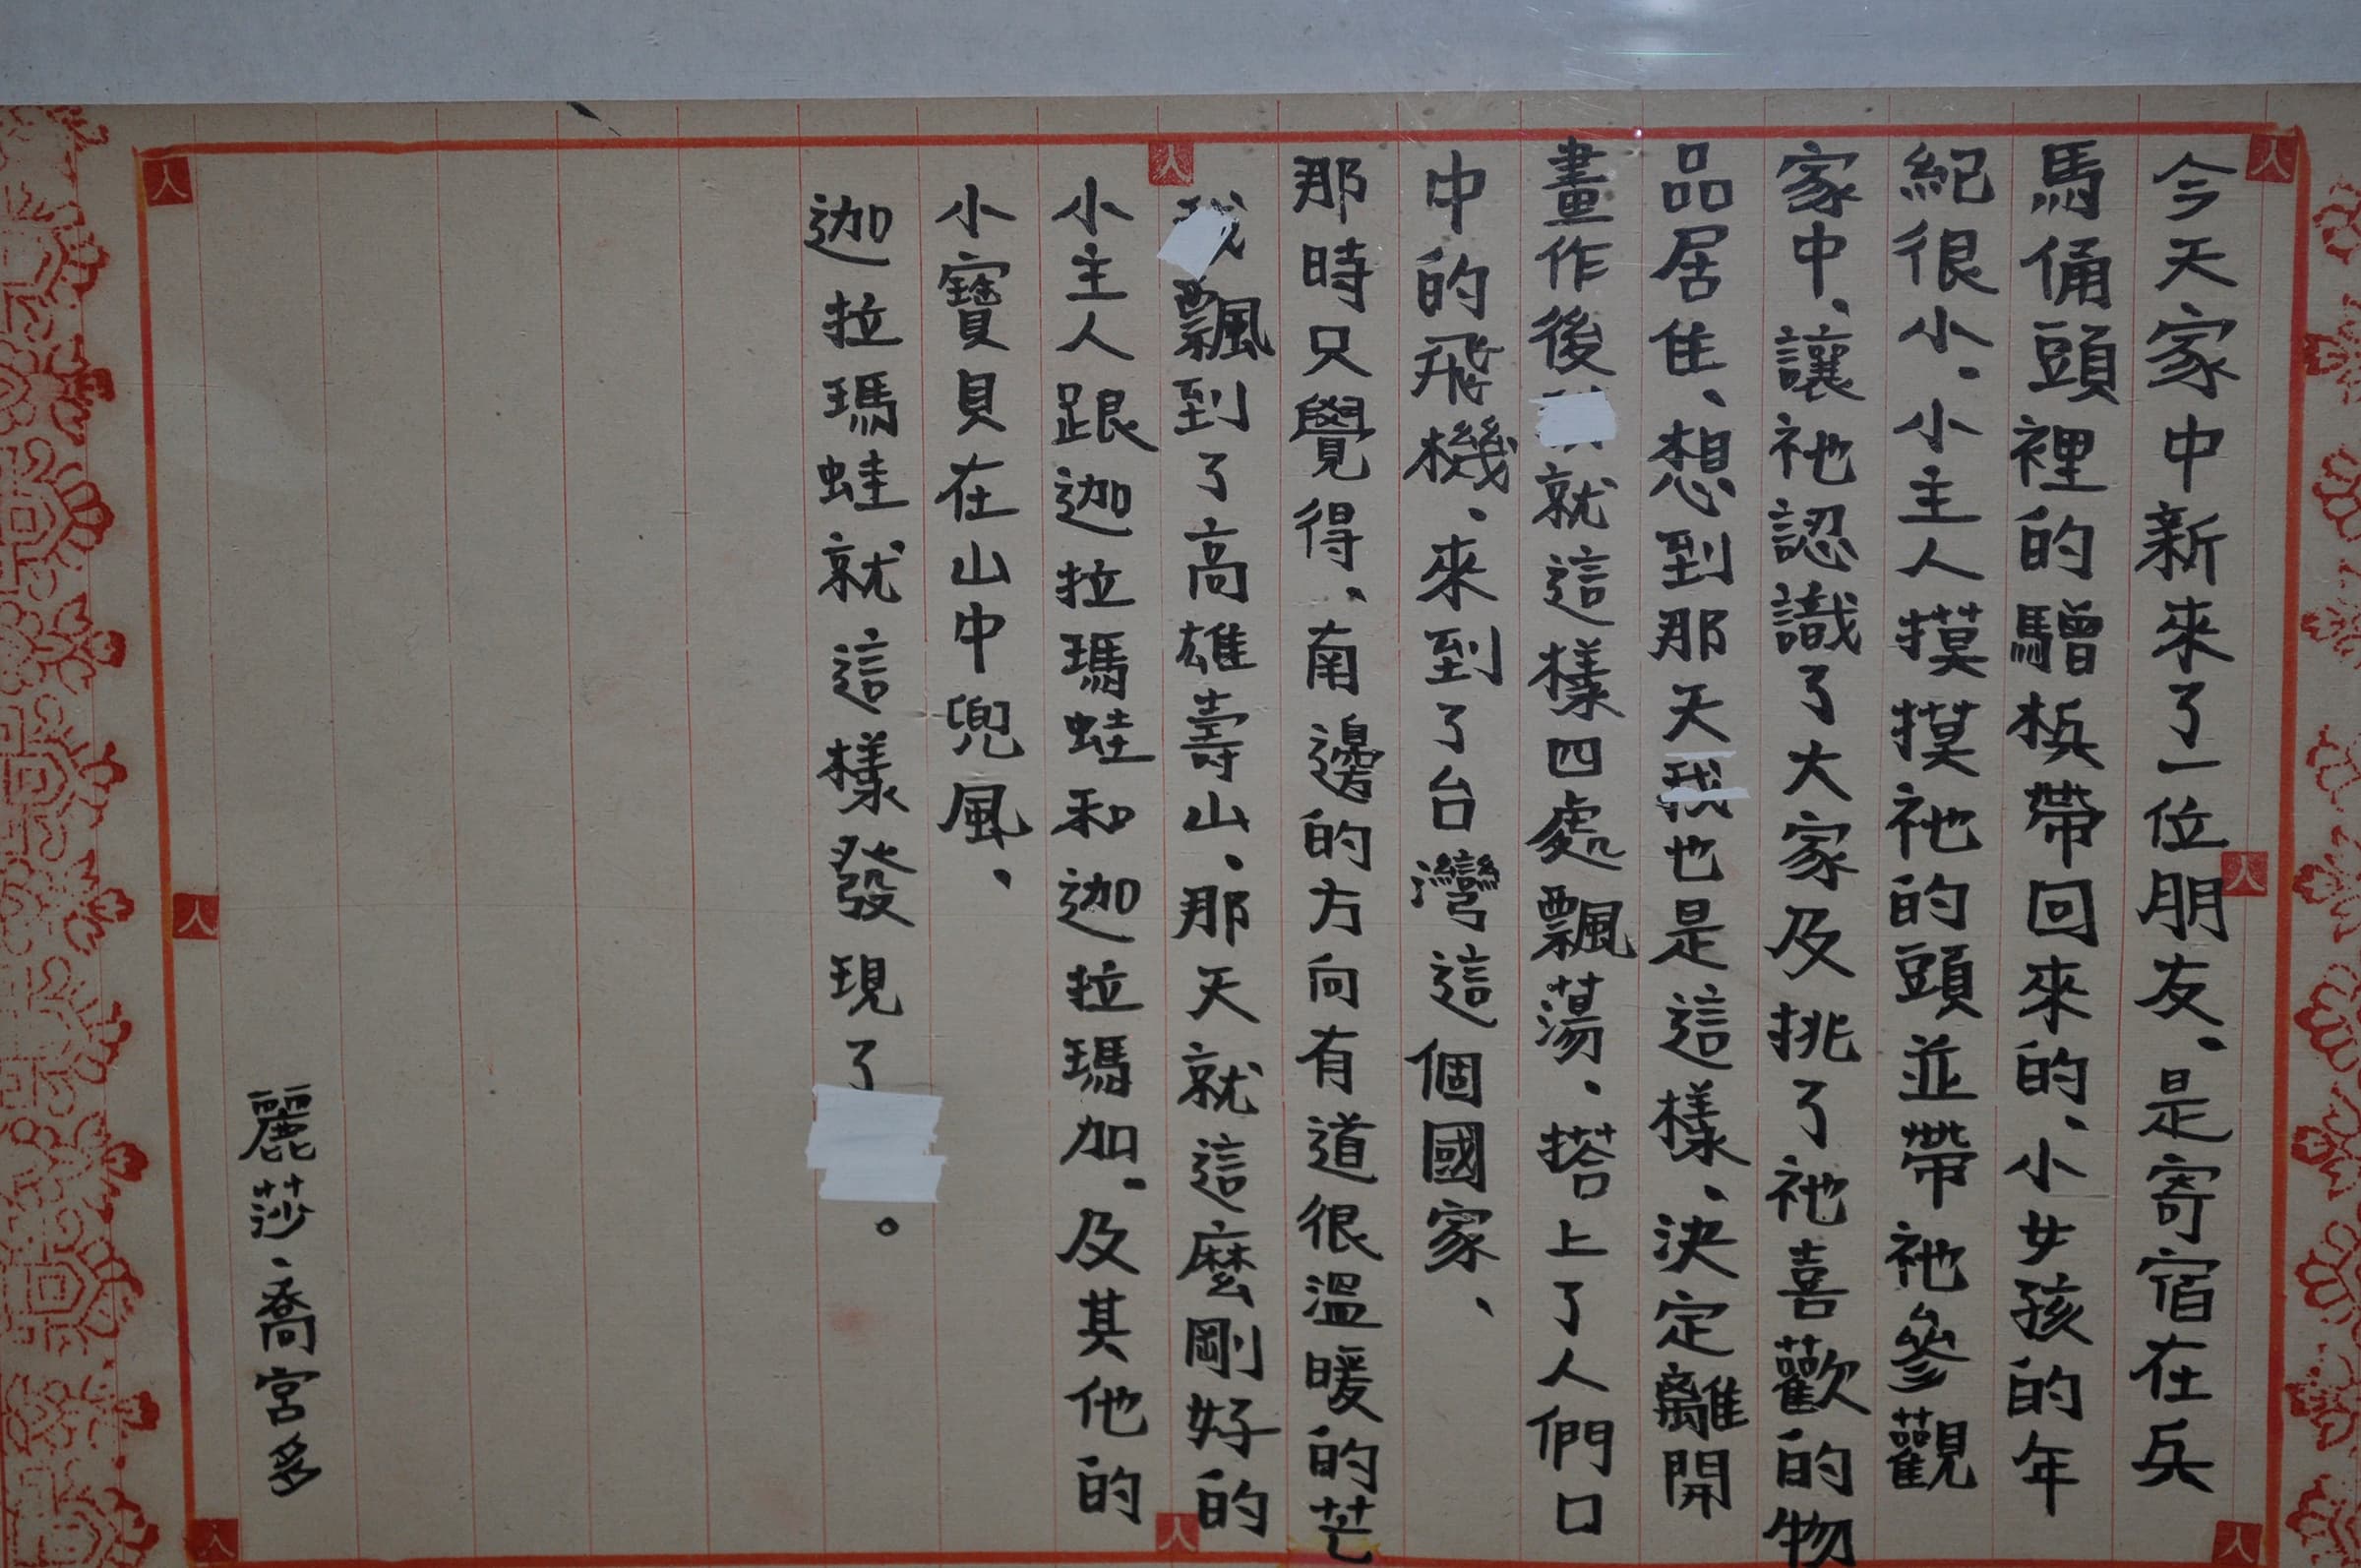 今天家中新來了一位朋友.是寄宿在兵
馬俑頭裡的驓梹帶回來的、小女孩的年
紀很小.小主人摸摸祂的頭並帶祂參觀
家中、讓祂認識了大家及挑了祂喜歡的物
品居住、想到那天我也是這樣.決定離開
畫作後就這樣四處飄蕩.搭上了人們口
中的飛機.來到了台灣這個國家、
那時只覺得、南邊的方向有道很溫暖的芒
我飄到了高雄壽山.那天就這麼剛好的
小主人跟迦拉瑪蛙和迦拉瑪加.及其他的
小寶貝在山中兜風、
迦拉瑪蛙就這樣發現了。
麗莎.喬宮多
人
人
人
人
人
人
人
人